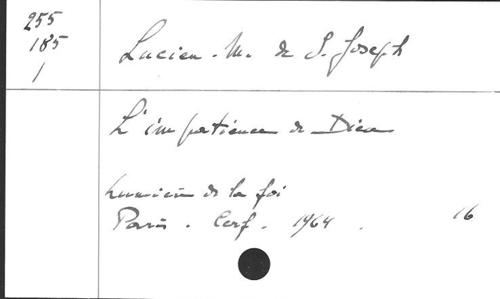 255
185
1
Lucien-M. de S. Joseph
L'impatience de Dieu
Lumière de la foi
Paris. Cerf. 1964. 16